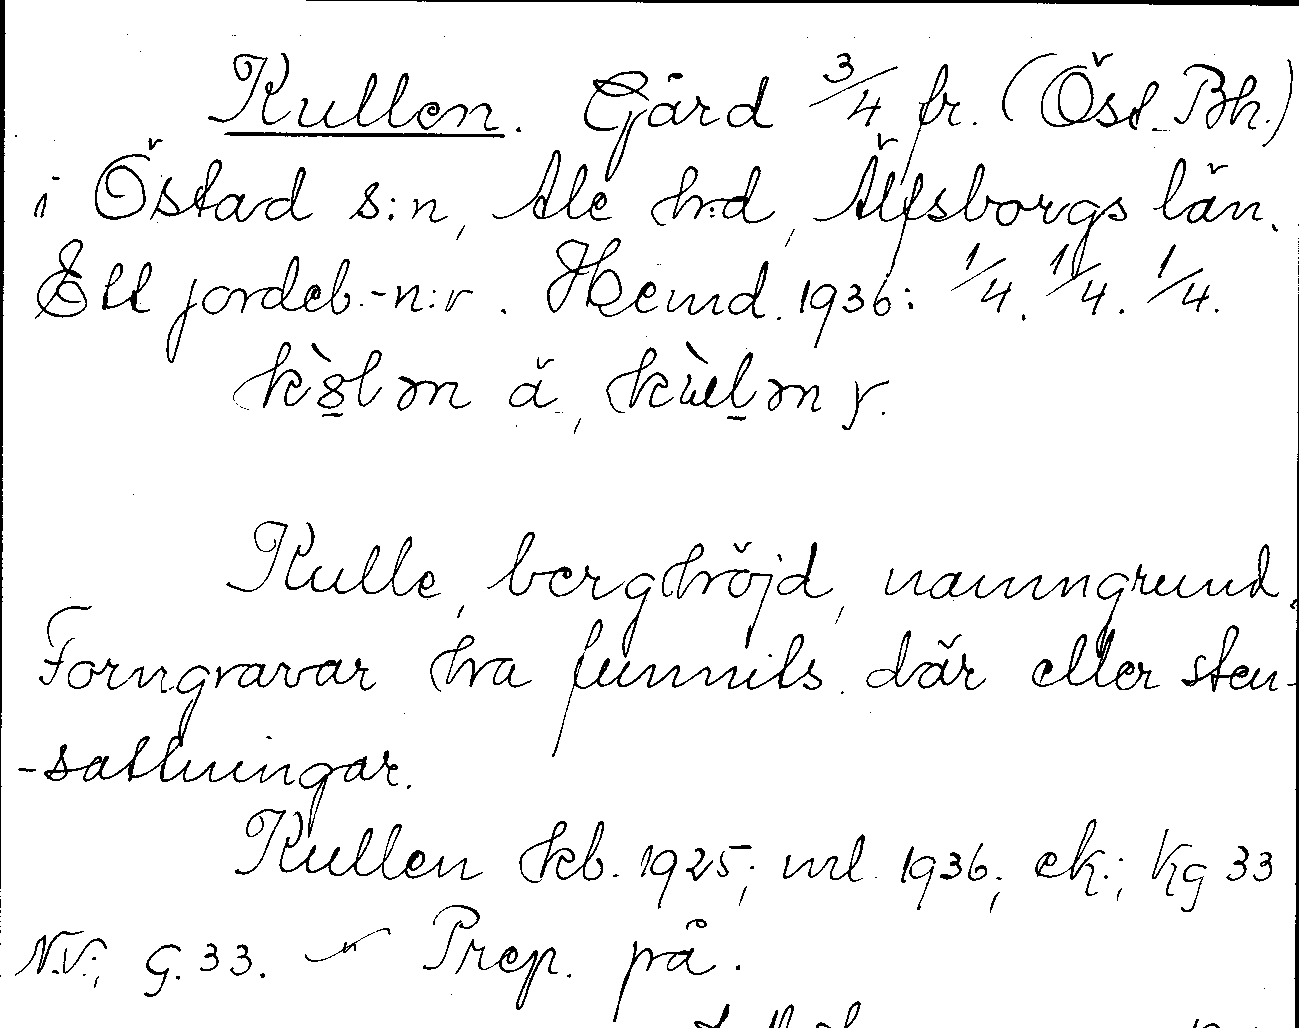 Kullen. Gård 3/4 fr. (Öst. Bh.)
i Östad s:n, Ale h:d, Älfsborgs län.
Ett jordeb.-n:r. Hemd. 1936: 1/4. 1/4. 1/4.
y.
Kulle, berghöjd, namngrund.
Forngravar ha funnits där eller sten-
-sattningar.
Kullen kb. 1925; ml. 1936; ek.; Kg 33
N.V.; G. 33. Prep. på.